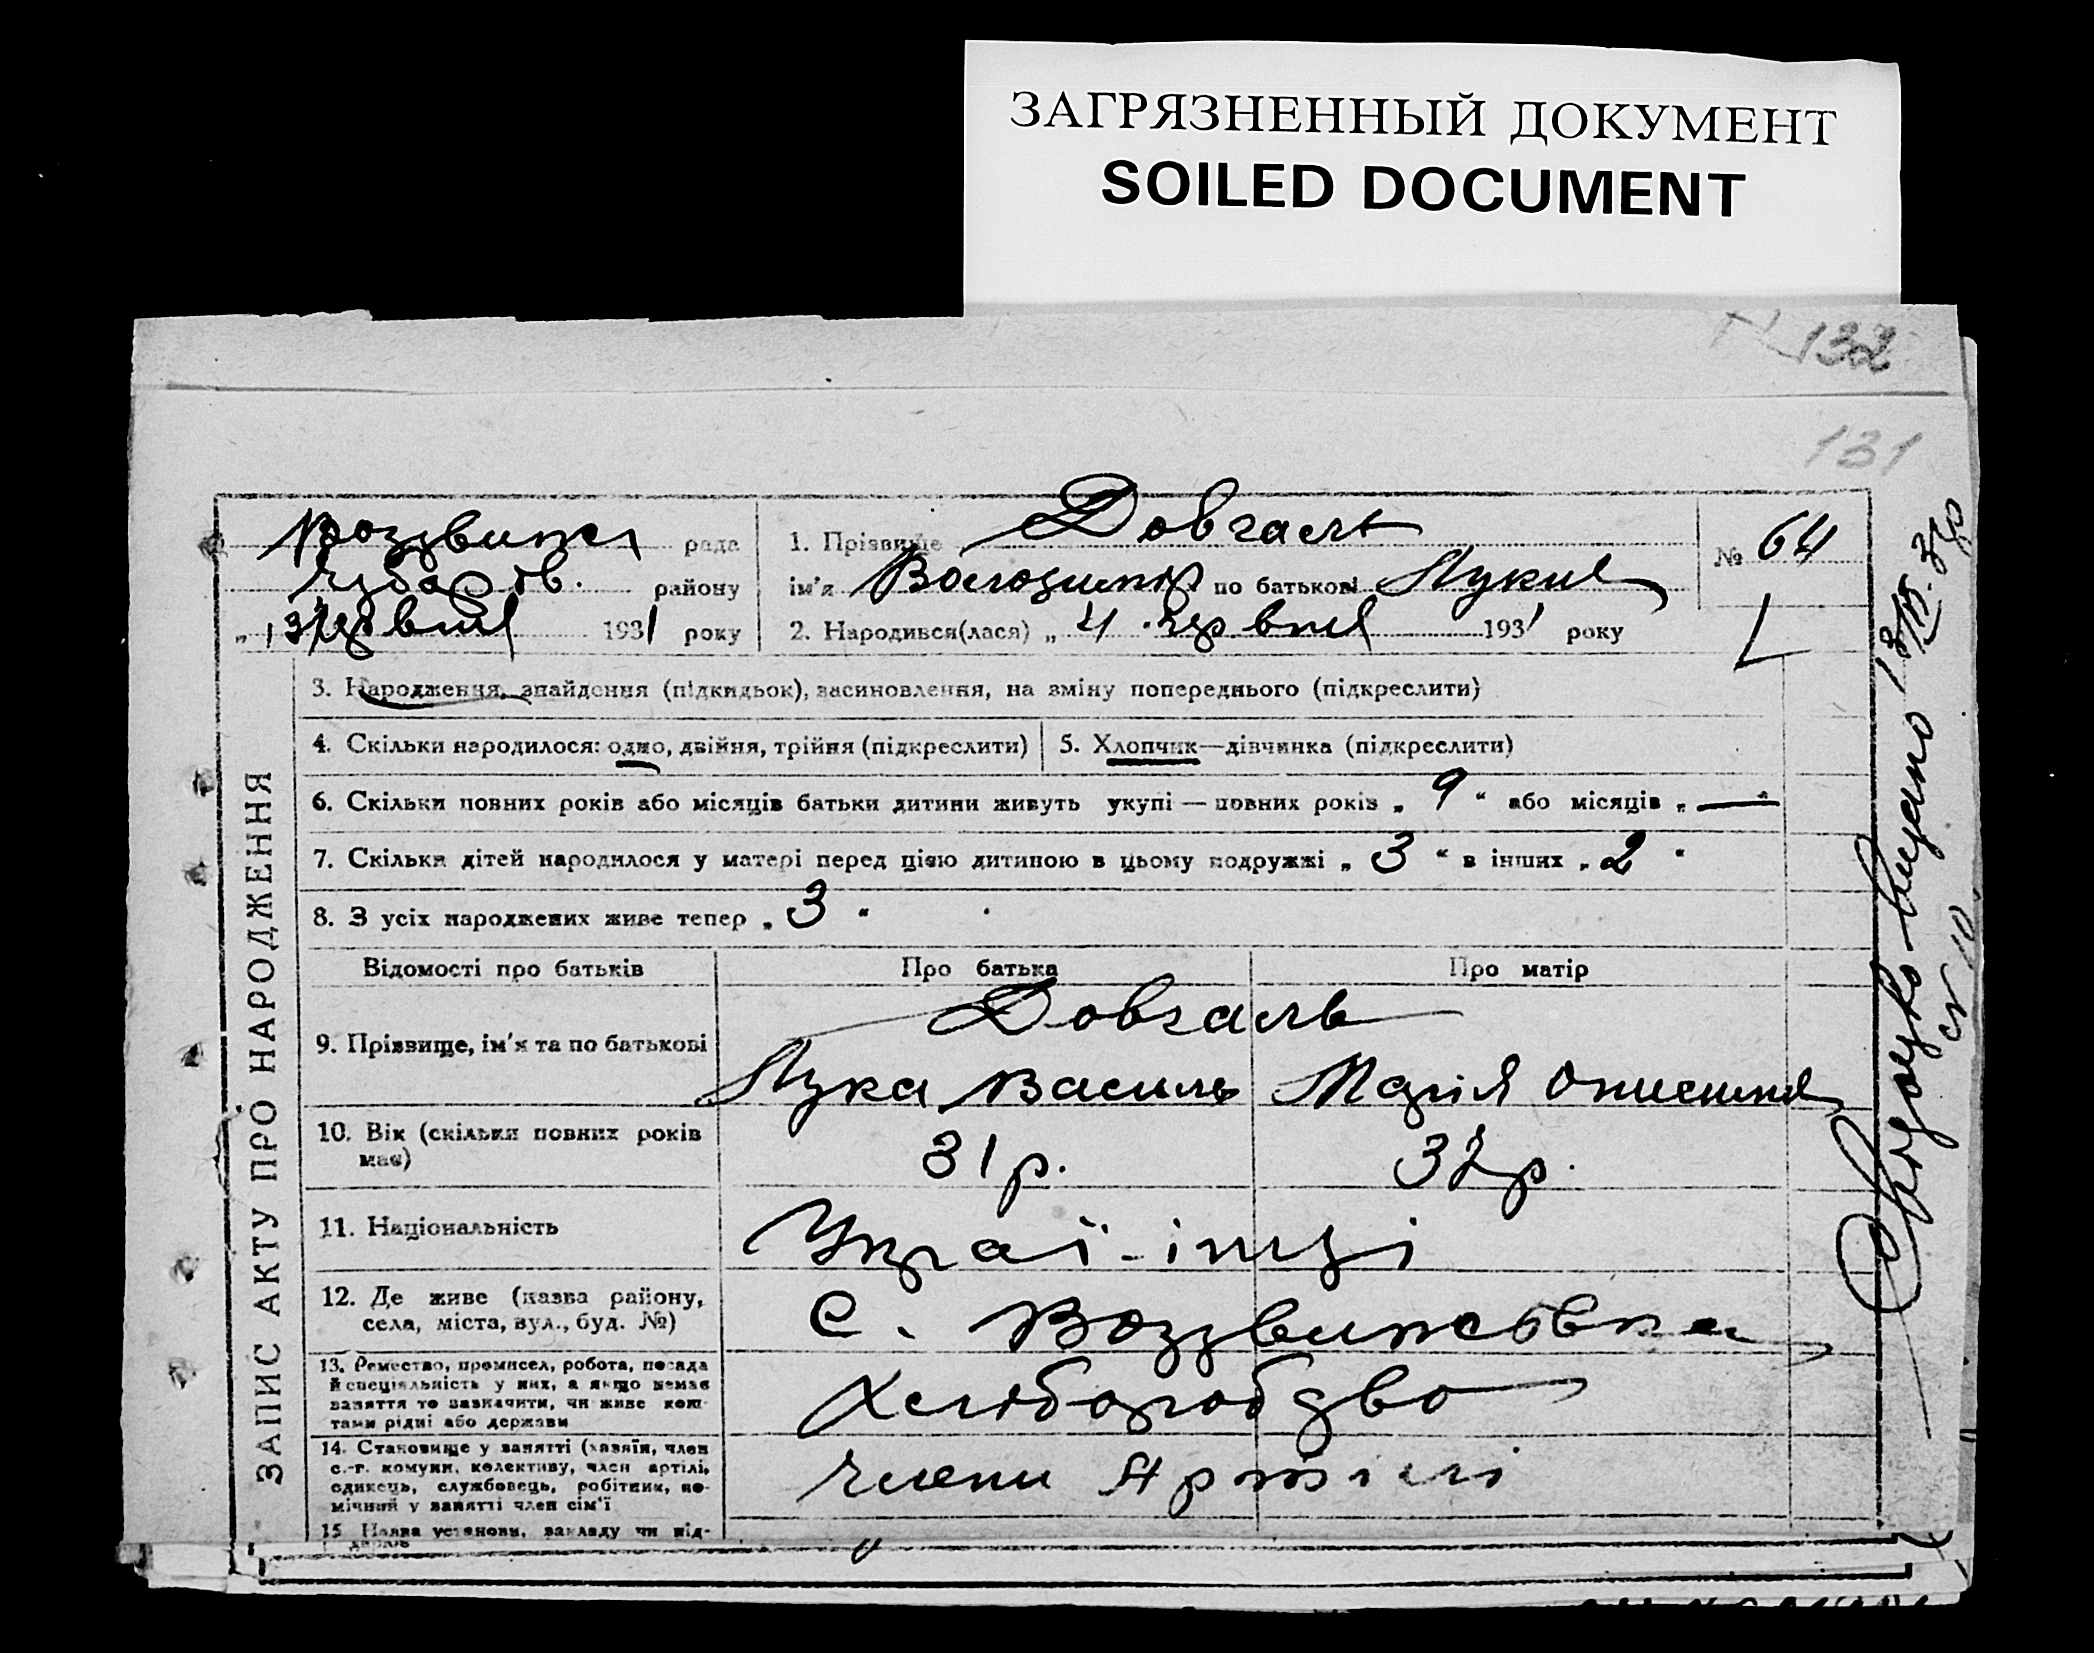 ЗАГРЯЗНЕННЫЙ ДОКУМЕНТ
SOILED DOCUMENT
132
131
Воздвиж рада
Чубарів. району
„ 13 червня 1931 року
1. Прізвище Довгаль
ім'я Володимір по батькові Лукич
№ 64
2. Народився(лася) „ 4 червня 1931 року
3. Народження, знайдення (підкидьок), засиновлення, на зміну попереднього (підкреслити)
4. Скільки народилося: одно, двійня, трійня (підкреслити)
5. Хлопчик—дівчинка (підкреслити)
6. Скільки повних років або місяців батьки дитини живуть укупі — повних років „ 9 “ або місяців „ — “
7. Скільки дітей народилося у матері перед цією дитиною в цьому подружжі „ 3 “ в інших „ 2 “
8. З усіх народжених живе тепер „ 3 “
ЗАПИС АКТУ ПРО НАРОДЖЕННЯ
Відомості про батьків
Про батька
Про матір
9. Прізвище, ім'я та по батькові
Довгаль
Лука Василь
Марія Онисимів
10. Вік (скільки повних років
має)
31 р.
32 р.
11. Національність
Украї-інці
12. Де живе (назва району,
села, міста, вул., буд. №)
С. Воздвижовка
13. Ремество, промисел, робота, посада
й спеціяльність у них, а якщо немає
заняття то зазначити, чи живе кош-
тами рідні або держави
Хліборобдво
14. Становище у занятті (хазяїн, член
с.-г. комуни, колективу, член артілі,
одинець, службовець, робітник, по-
мічний у занятті член сім'ї
члени Артілі
15 Назва установи, закладу чи під-